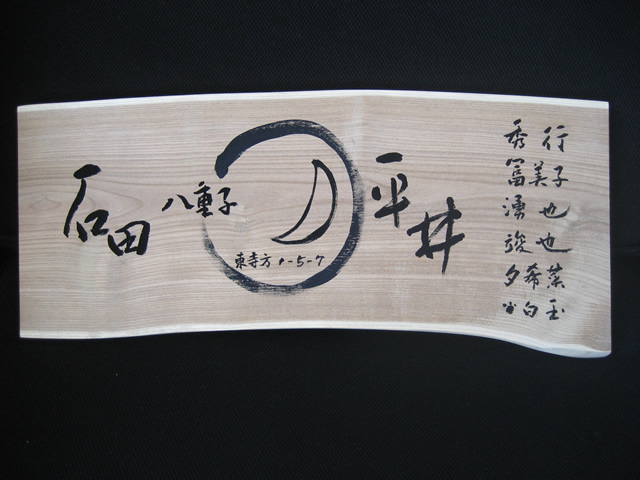 石田 八重子
東寺方1-5-7
平井
秀行
冨美子
湧也
也
夕希菜
白玉